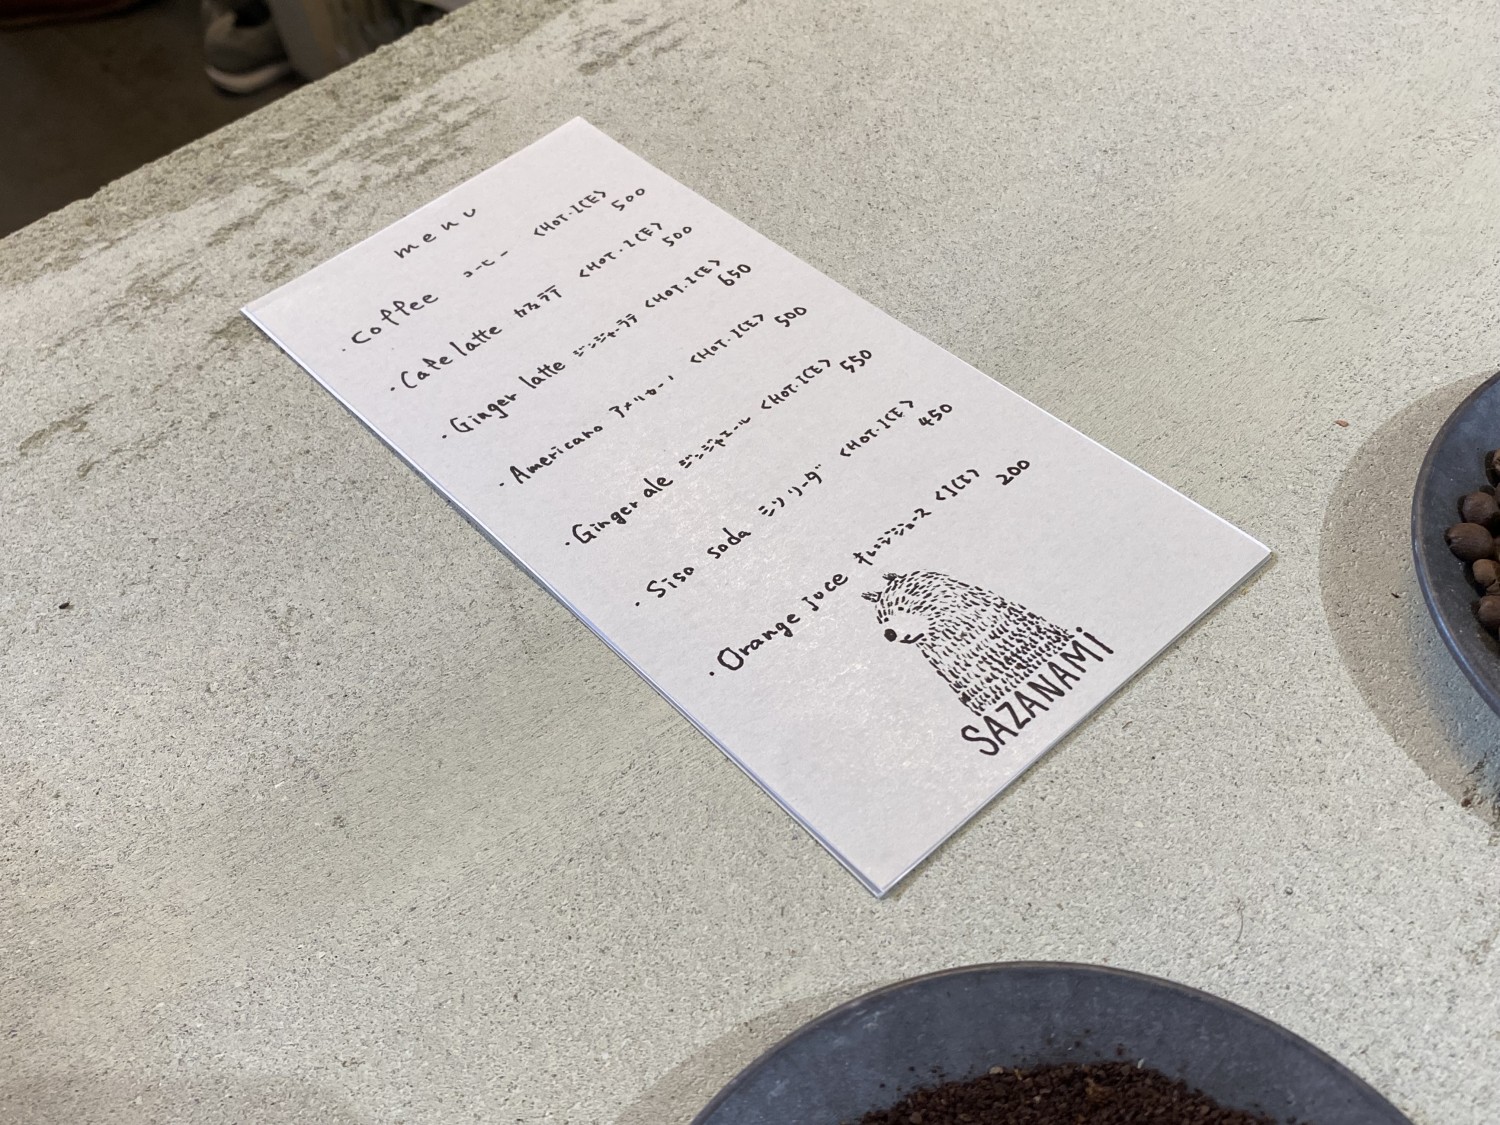 menu
・Coffee コーヒー <HOT・ICE> 500
・Cafe latte カフェラテ <HOT・ICE> 500
・Ginger latte ジンジャーラテ <HOT・ICE> 650
・Americano アメリカーノ <HOT・ICE> 500
・Ginger ale ジンジャエール <HOT・ICE> 550
・Siso soda シソソーダ <HOT・ICE> 450
・Orange juce オレンジジュース <ICE> 200
SAZANAMi